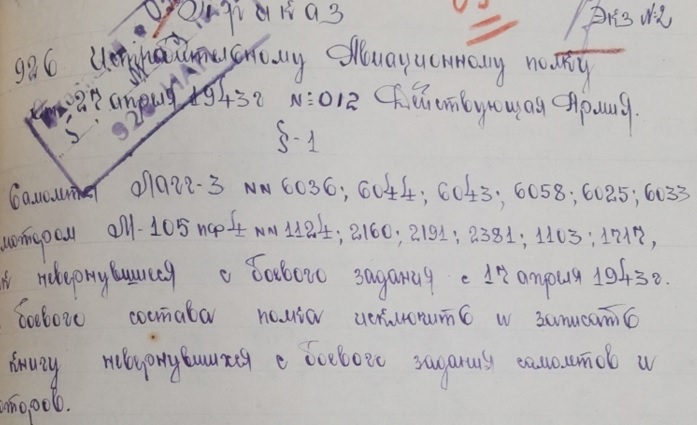 Приказ Экз №2
926 Истребительному Авиационному полку
27 апреля 1943г №012 Действующая Армия.
§-1
Самолеты Лагг-3 NN 6036; 6044; 6043; 6058; 6025; 6033
мотором М-105 пф 4 NN 1124; 2160; 2191; 2381; 1103; 1717,
невернувшиеся с боевого задания с 17 апреля 1943г.
боевого состава полка исключить и записать
книгу невернувшихся с боевого задания самолетов и
оторов.